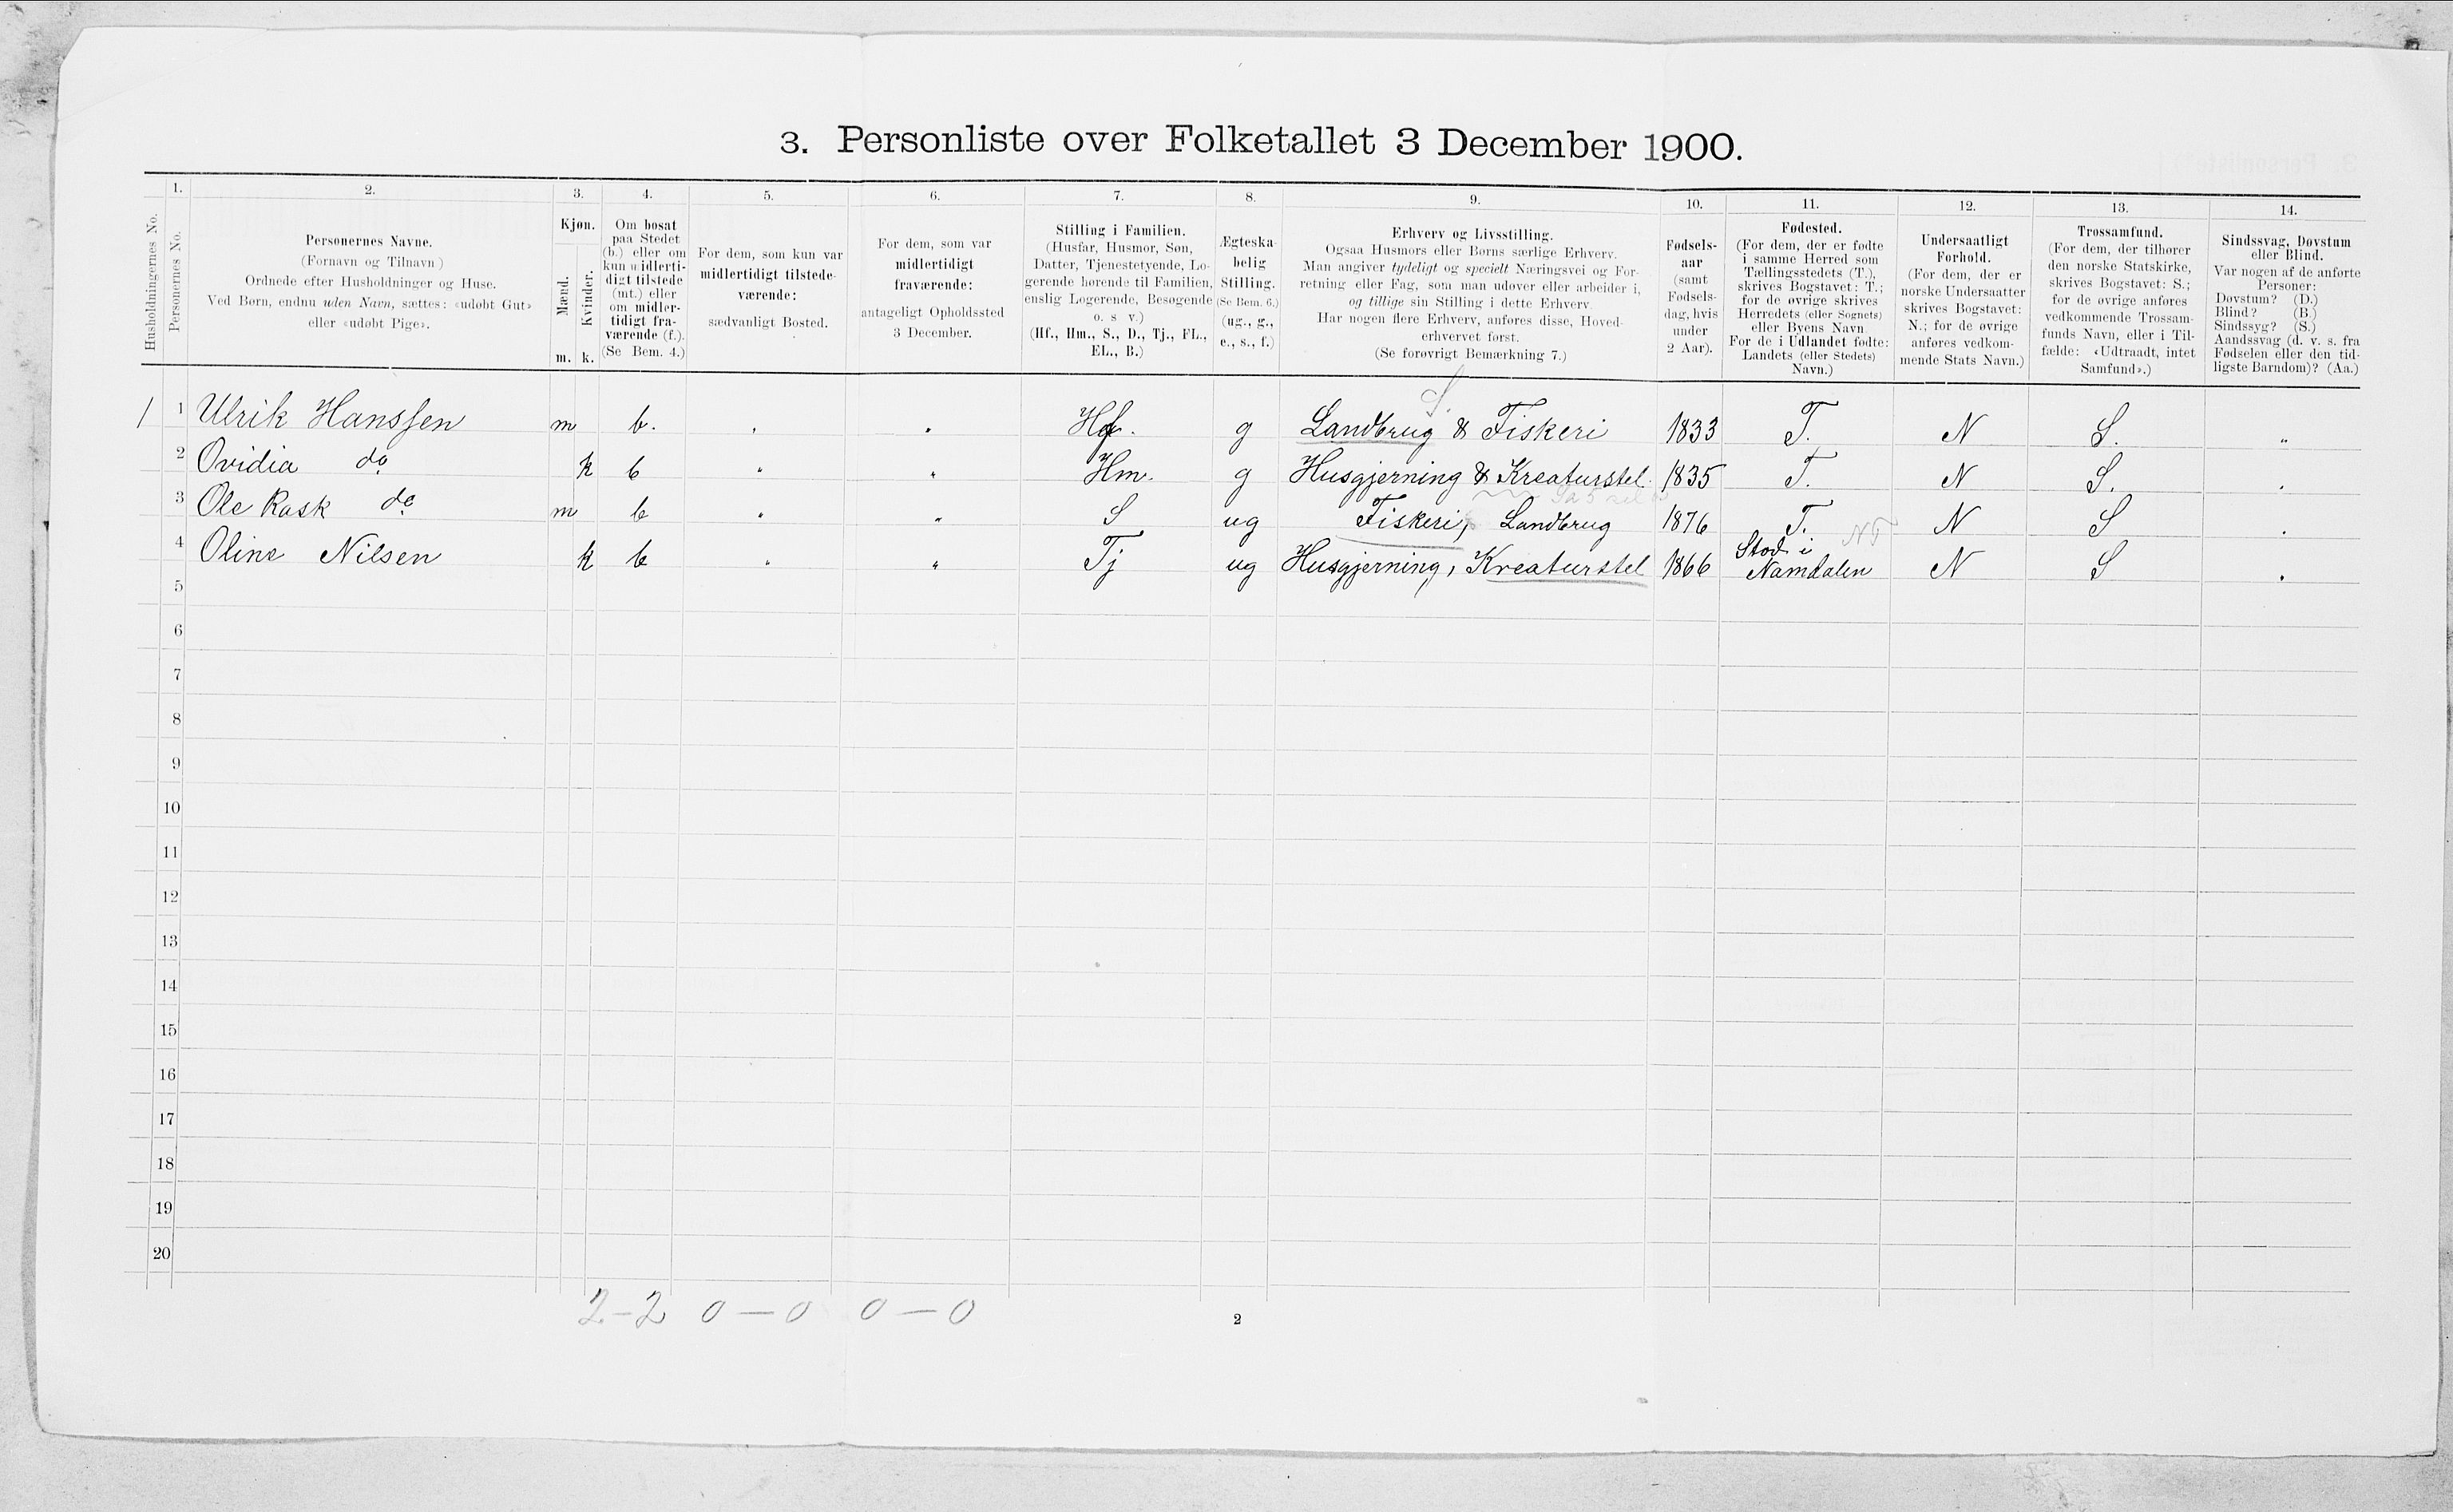 3. Personliste over Folketallet 3 December 1900.
Husholdningernes No.
1.
Personernes No.
2.
Personernes Navne.
(Fornavn og Tilnavn)
Ordnede efter Husholdninger og Huse.
Ved Børn, endnu uden Navn, sættes: «udøbt Gut»
eller «udøbt Pige».
3.
Kjøn.
Mænd.
Kvinder.
m. k.
4.
Om bosat
paa Stedet
(b.) eller om
kun midlerti-
digt tilstede
(mt.) eller
om midler-
tidigt fra-
værende (f.).
(Se Bem. 4.)
5.
For dem, som kun var
midlertidigt tilstede-
værende:
sædvanligt Bosted.
6.
For dem, som var
midlertidigt
fraværende:
antageligt Opholdssted
3 December.
7.
Stilling i Familien.
(Husfar, Husmor, Søn,
Datter, Tjenestetyende, Lo-
gerende hørende til Familien,
enslig Logerende, Besøgende
o. s v.)
(Hf., Hm., S., D., Tj., FL.,
EL., B.)
8.
Ægteska-
belig
Stilling.
(Se Bem. 6.)
(ug., g.,
e., s., f.)
9.
Erhverv og Livsstilling.
Ogsaa Husmors eller Børns særlige Erhverv.
Man angiver tydeligt og specielt Næringsvei og For-
retning eller Fag, som man udøver eller arbeider i,
og tillige sin Stilling i dette Erhverv.
Har nogen flere Erhverv, anføres disse, Hoved-
erhvervet først.
(Se forøvrigt Bemærkning 7.)
10.
Fødsels-
aar
(samt
Fødsels-
dag, hvis
under
2 Aar).
11.
Fødested.
(For dem, der er fødte
i samme Herred som
Tællingsstedets (T.),
skrives Bogstavet: T.;
for de øvrige skrives
Herredets (eller Sognets)
eller Byens Navn
For de i Udlandet fødte:
Landets (eller Stedets)
Navn.)
12.
Undersaatligt
Forhold.
(For dem, der er
norske Undersaatter
skrives Bogstavet:
N.; for de øvrige
anføres vedkom-
mende Stats Navn.)
13.
Trossamfund.
(For dem, der tilhører
den norske Statskirke,
skrives Bogstavet: S.;
for de øvrige anføres
vedkommende Trossam-
funds Navn, eller i Til-
fælde: «Udtraadt, intet
Samfund».)
14.
Sindssvag, Døvstum
eller Blind.
Var nogen af de anførte
Personer:
Døvstum? (D.)
Blind? (B.)
Sindssyg? (S.)
Aandssvag (d. v. s. fra
Fødselen eller den tid-
ligste Barndom)? (Aa.)
S.
1 1 Ulrik Hanssen m b. Hf. g Landbrug & Fiskeri 1833 T. N S. "
2 Ovidia do k b " " Hm. g Husgjerning & Kreaturstel 1835 T. N S.
3 Ole Rask do m b " " S ug Fiskeri, Landbrug 1876 T. N S
4 Oline Nilsen k b " " Tj ug Husgjerning, Kreaturstel 1866 Stod i Namdalen NT N S
5
6
7
8
9
10
11
12
13
14
15
16
17
18
19
20
2-2 0-0 0-0
2